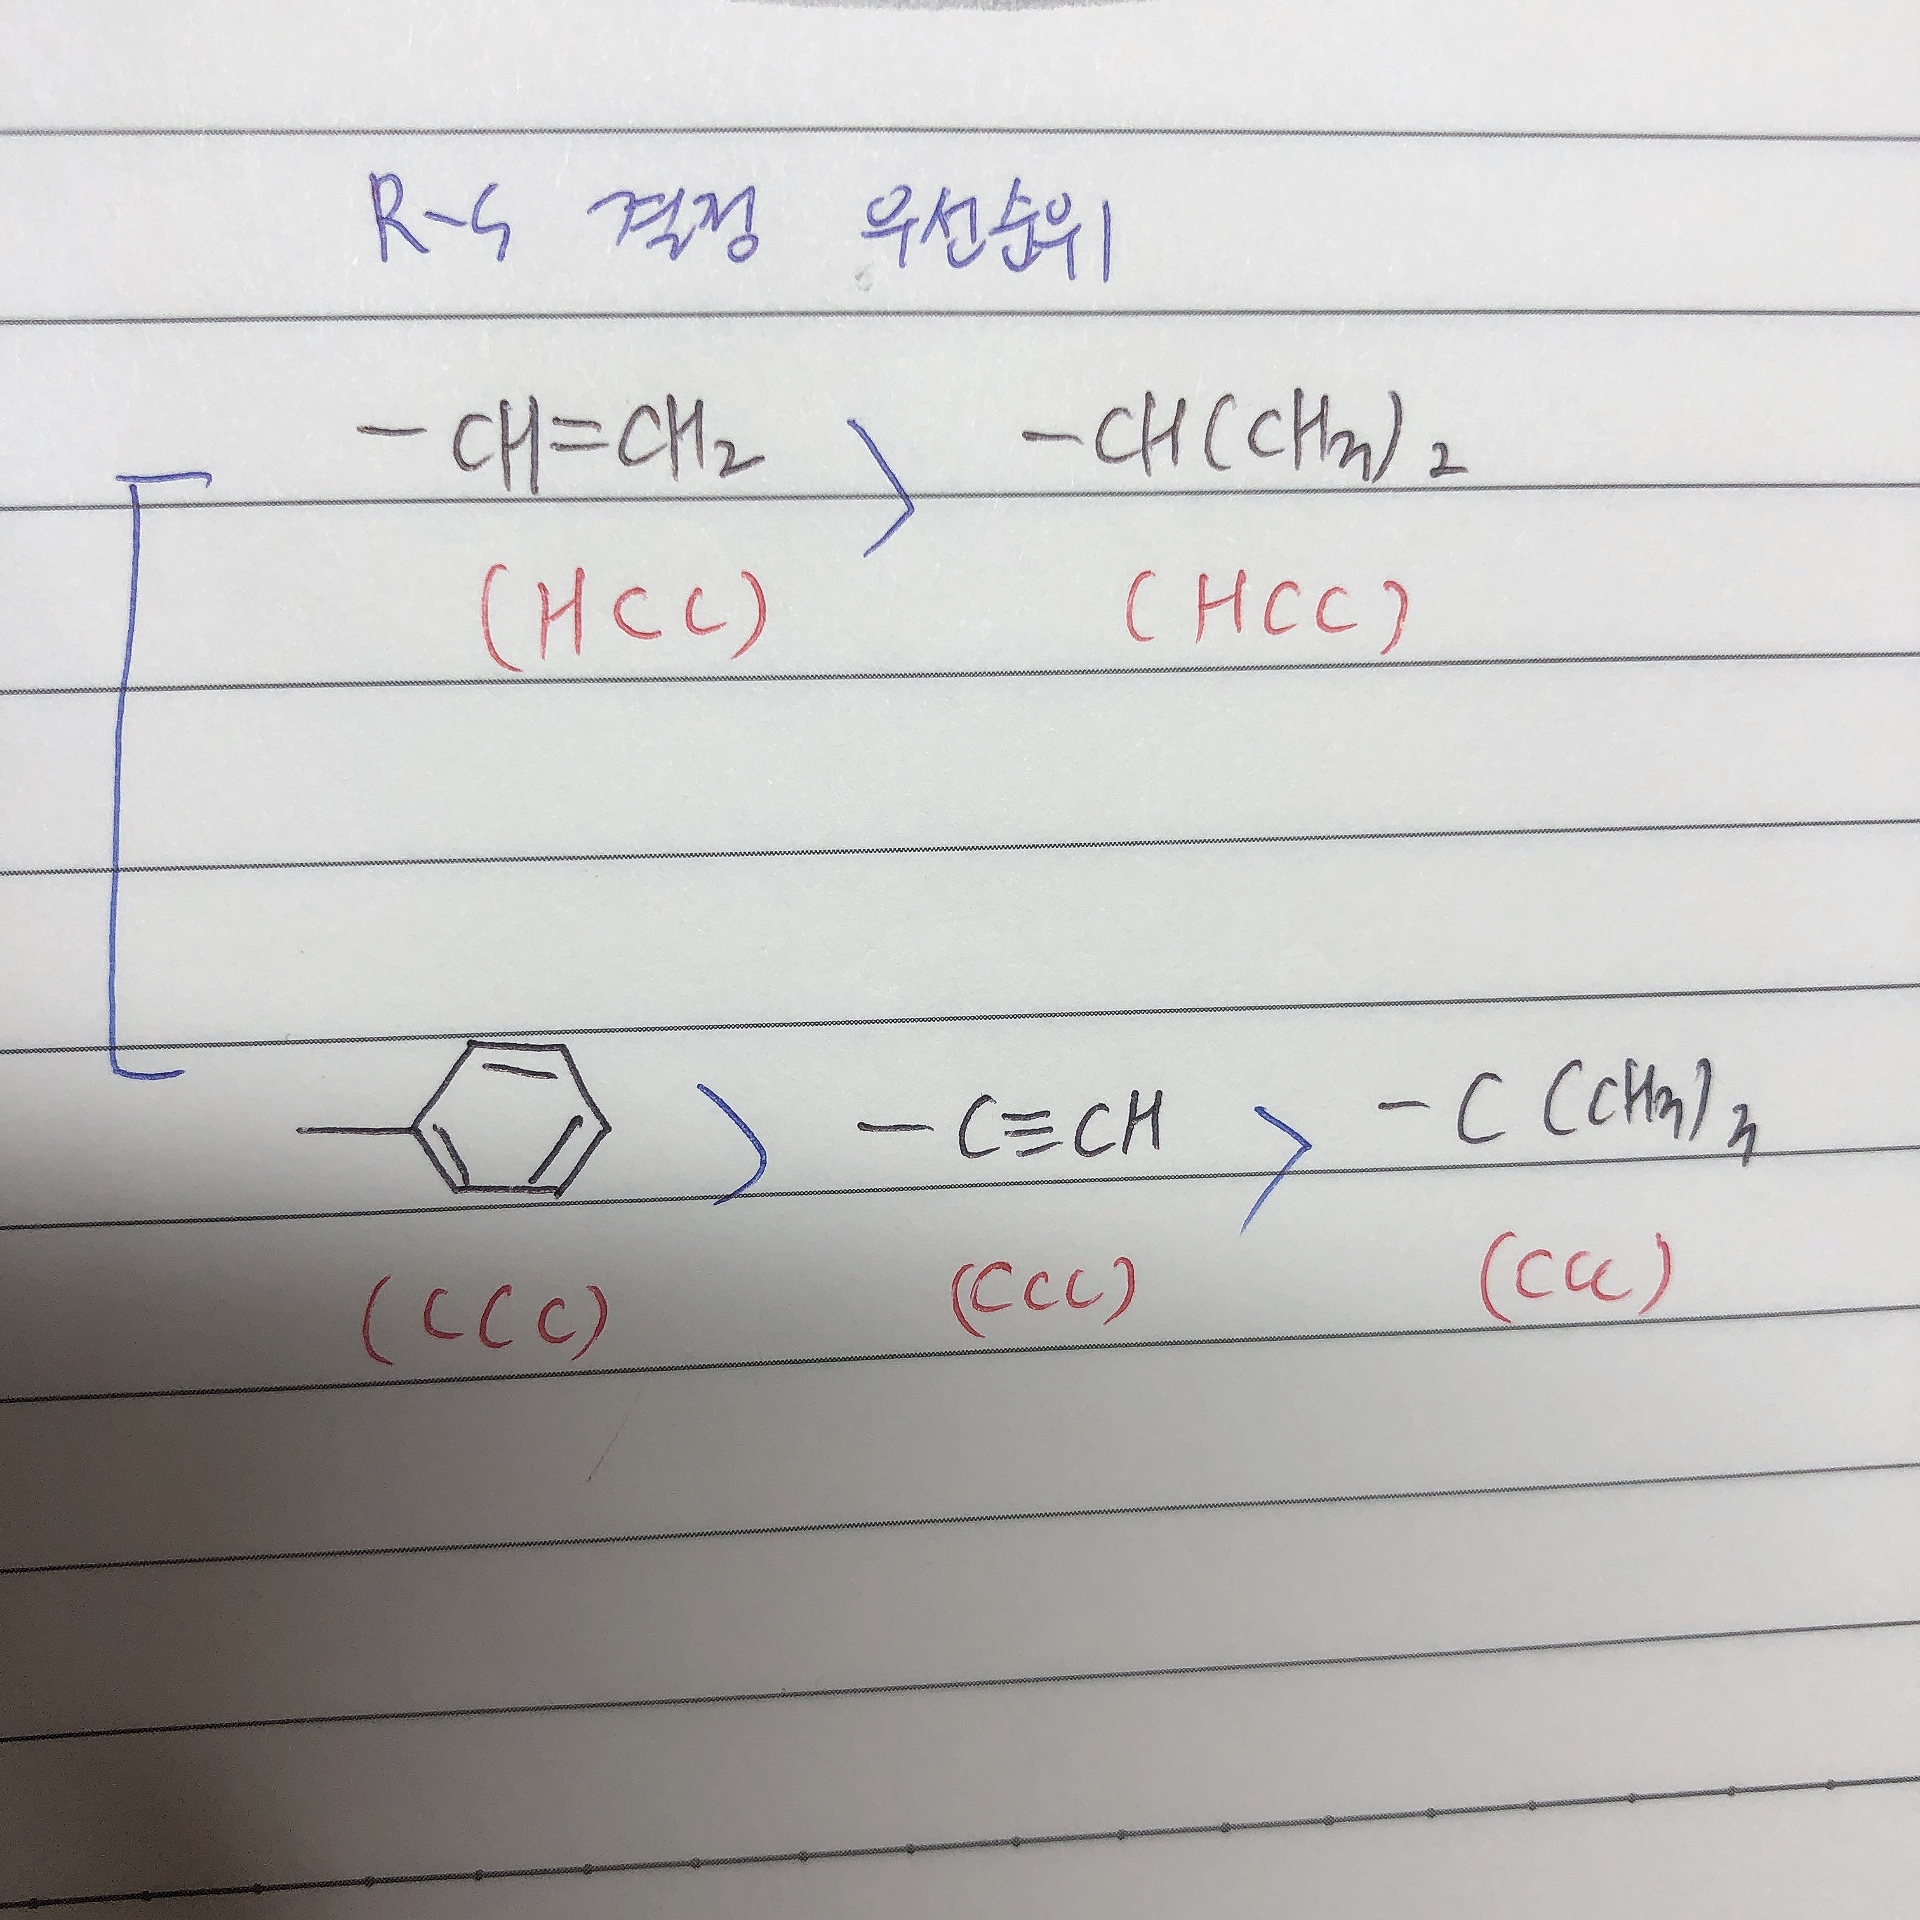 R-S 결정 우선순위
-CH=CH2 > -CH(CH3)2
(HCC) (HCC)
> -C≡CH > -C(CH3)3
(CCC) (CCC) (CCC)